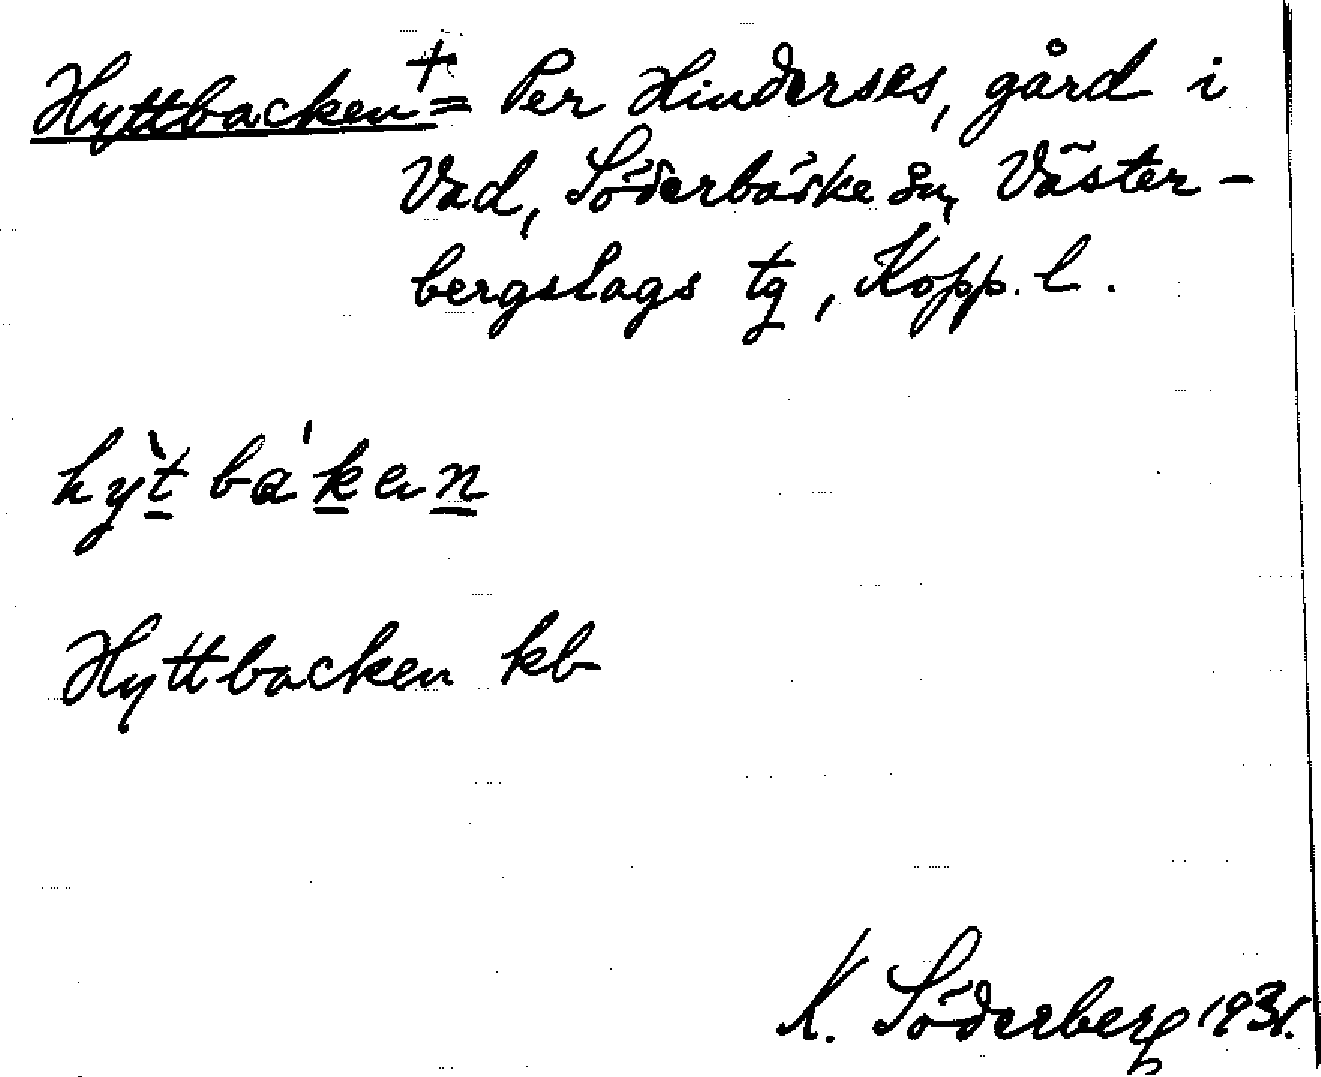 Hyttbacken + = Per Hinderses, gård i
Vad, Söderbärke sn, Väster-
bergslags tg, Kopp. l.
hỳt bá'ken
Hyttbacken kb
K. Söderberg 1931.